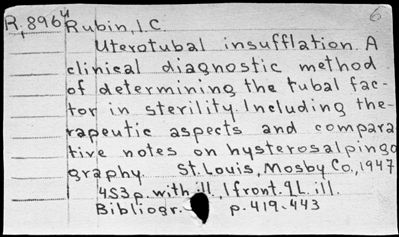 R,896u Rubin, I.C. 6
Uterotubal insufflation. A
clinical diagnostic method
of determining the tubal fac-
tor in sterility. Including the-
rapeutic aspects and compara
tive notes on hysterosalpingo
graphy. St. Louis, Mosby Co., 1947
453p. with ill., 1 front. 9L. ill.
Bibliogr. p. 419-443